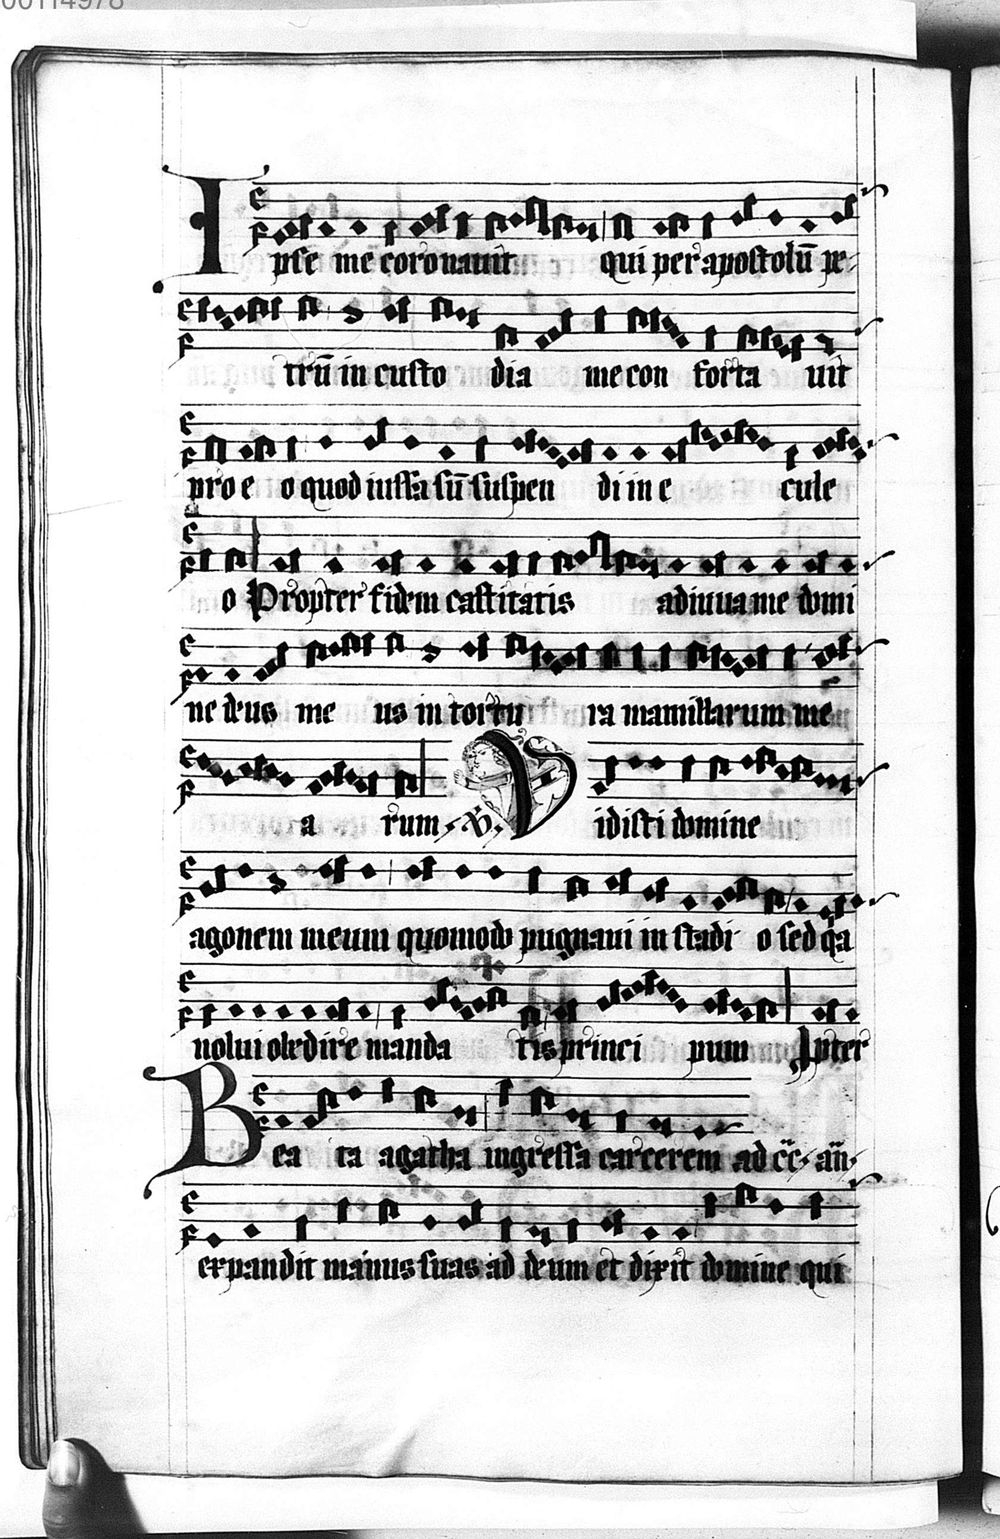 00114978
Ipse me coronauit qui per apostolū pe
trū in custo dia me con forta uit
pro e o quod iussa sū suspen di in e cule
o Propter fidem castitatis adiuua me domi
ne deus me us in tortu ra mamillarum me
a rum. V. Vidisti domine
agonem meum quomodo pugnaui in stadi o sed qa
nolui obedire manda tis princi pum Ipter
Bea ta agatha ingressa carcerem ad cc. an.
expandit manus suas ad deum et dixit domine qui